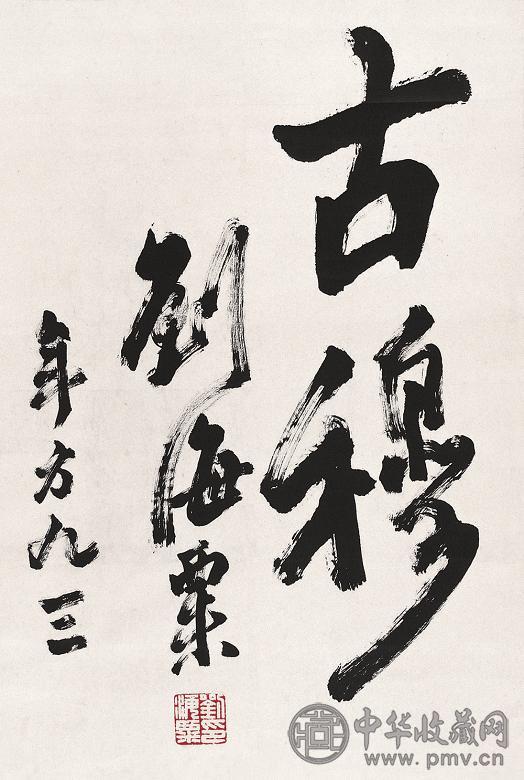 古穆
劉海粟
年方九三
劉海粟印
中华收藏网
www.pmv.cn